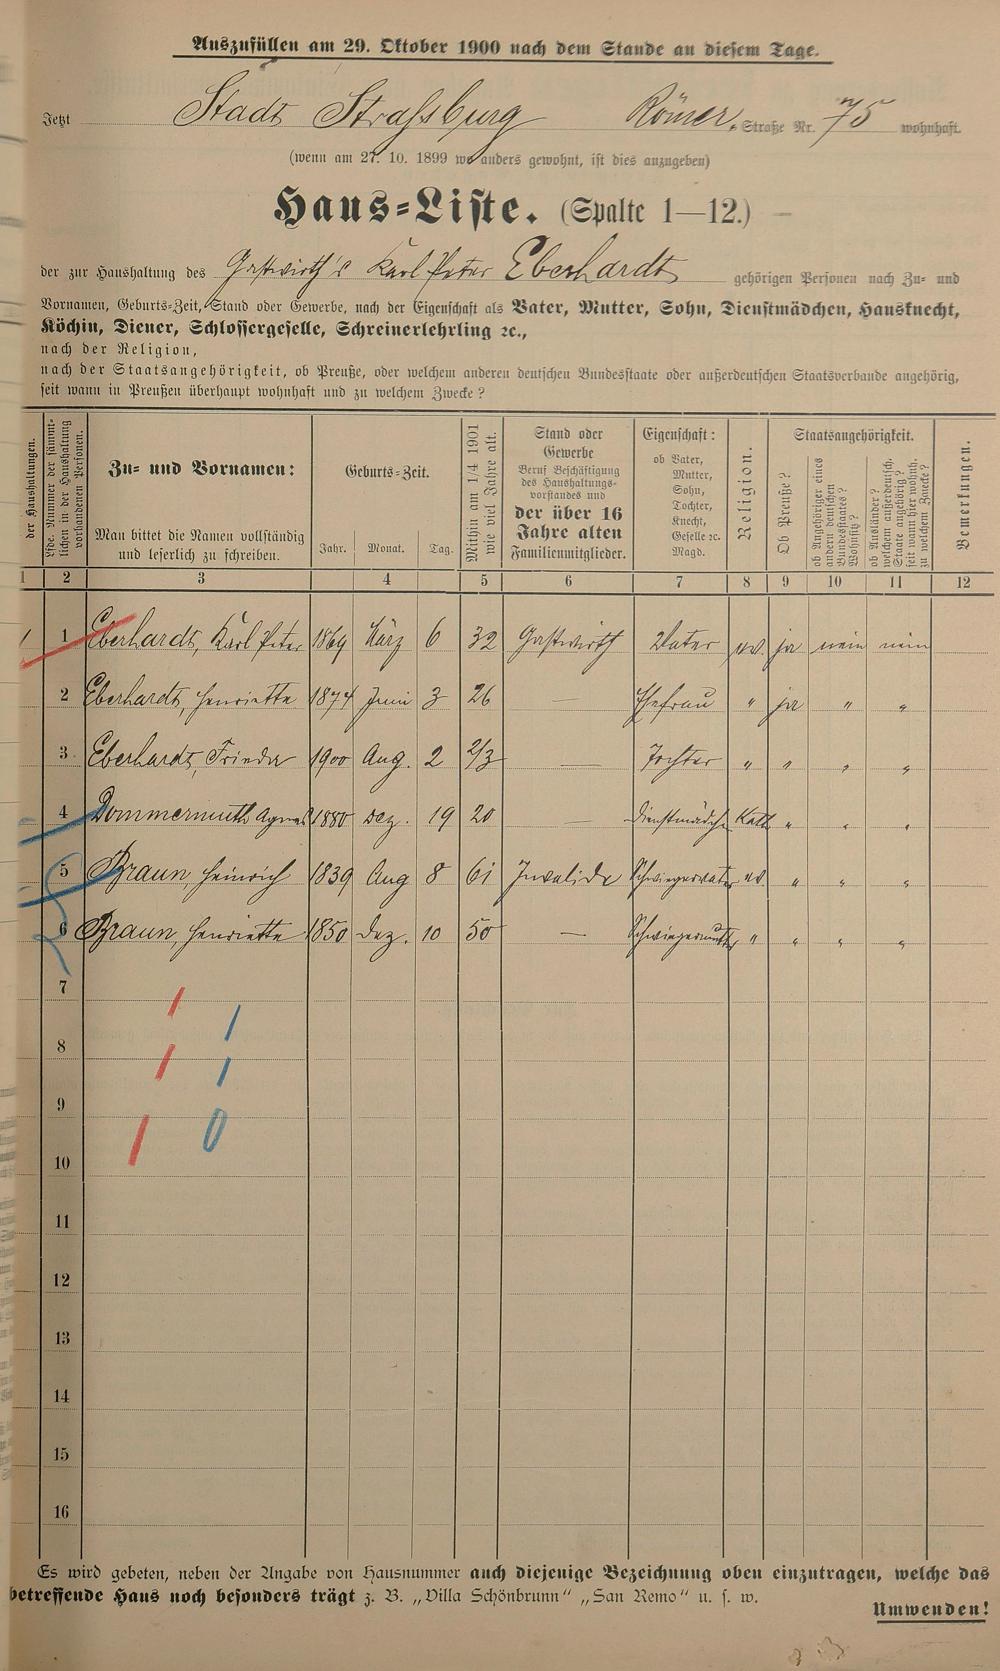 Auszufüllen am 29. Oktober 1900 nach dem Stande an diesem Tage.
Jetzt Stadt Straßburg Römer. Straße Nr. 75 wohnhaft.
(wenn am 27. 10. 1899 wo anders gewohnt, ist dies anzugeben)
Haus-Liste. (Spalte 1—12.)
der zur Haushaltung des Gastwirth's Karl Peter Eberhardt gehörigen Personen nach Zu- und
Vornamen, Geburts-Zeit, Stand oder Gewerbe, nach der Eigenschaft als Vater, Mutter, Sohn, Dienstmädchen, Hausknecht,
Köchin, Diener, Schlossergeselle, Schreinerlehrling ꝛc.,
nach der Religion,
nach der Staatsangehörigkeit, ob Preuße, oder welchem anderen deutschen Bundesstaate oder außerdeutschen Staatsverbande angehörig,
seit wann in Preußen überhaupt wohnhaft und zu welchem Zwecke?
der Haushaltungen.
Lfde. Nummer der sämmt-
lichen in der Haushaltung
vorhandenen Personen.
Zu- und Vornamen:
Man bittet die Namen vollständig
und leserlich zu schreiben.
Geburts-Zeit.
Jahr. Monat. Tag.
Mithin am 1/4 1901
wie viel Jahre alt.
Stand oder
Gewerbe
Beruf Beschäftigung
des Haushaltungs-
vorstandes und
der über 16
Jahre alten
Familienmitglieder.
Eigenschaft:
ob Vater,
Mutter,
Sohn,
Tochter,
Knecht,
Geselle ꝛc.
Magd.
Religion.
Staatsangehörigkeit.
Ob Preuße?
ob Angehöriger eines
andern deutschen
Bundesstaates?
Wohnsitz?
ob Ausländer?
welchem außerdeutsch.
Staate angehörig?
seit wann hier wohnh.
zu welchem Zwecke?
Bemerkungen.
1 2 3 4 5 6 7 8 9 10 11 12
1 1 Eberhardt, Karl Peter 1869 März 6 32 Gastwirth Vater ev. ja nein nein
2 Eberhardt, Henriette 1874 Juni 3 26 — Ehefrau " ja " "
3 Eberhardt, Frieda 1900 Aug. 2 2/3 — Tochter " " " "
4 Dommermuth Agnes 1880 Dez. 19 20 — Dienstmädch Kath " " "
5 Braun, Heinrich 1839 Aug 8 61 Invalide Schwiegervater ev. " " "
6 Braun, Henriette 1850 Dez. 10 50 — Schwiegermutter " " " "
7
8
9
10
11
12
13
14
15
16
Es wird gebeten, neben der Angabe von Hausnummer auch diejenige Bezeichnung oben einzutragen, welche das
betreffende Haus noch besonders trägt z. B. „Villa Schönbrunn“ „San Remo“ u. s. w.
Umwenden!